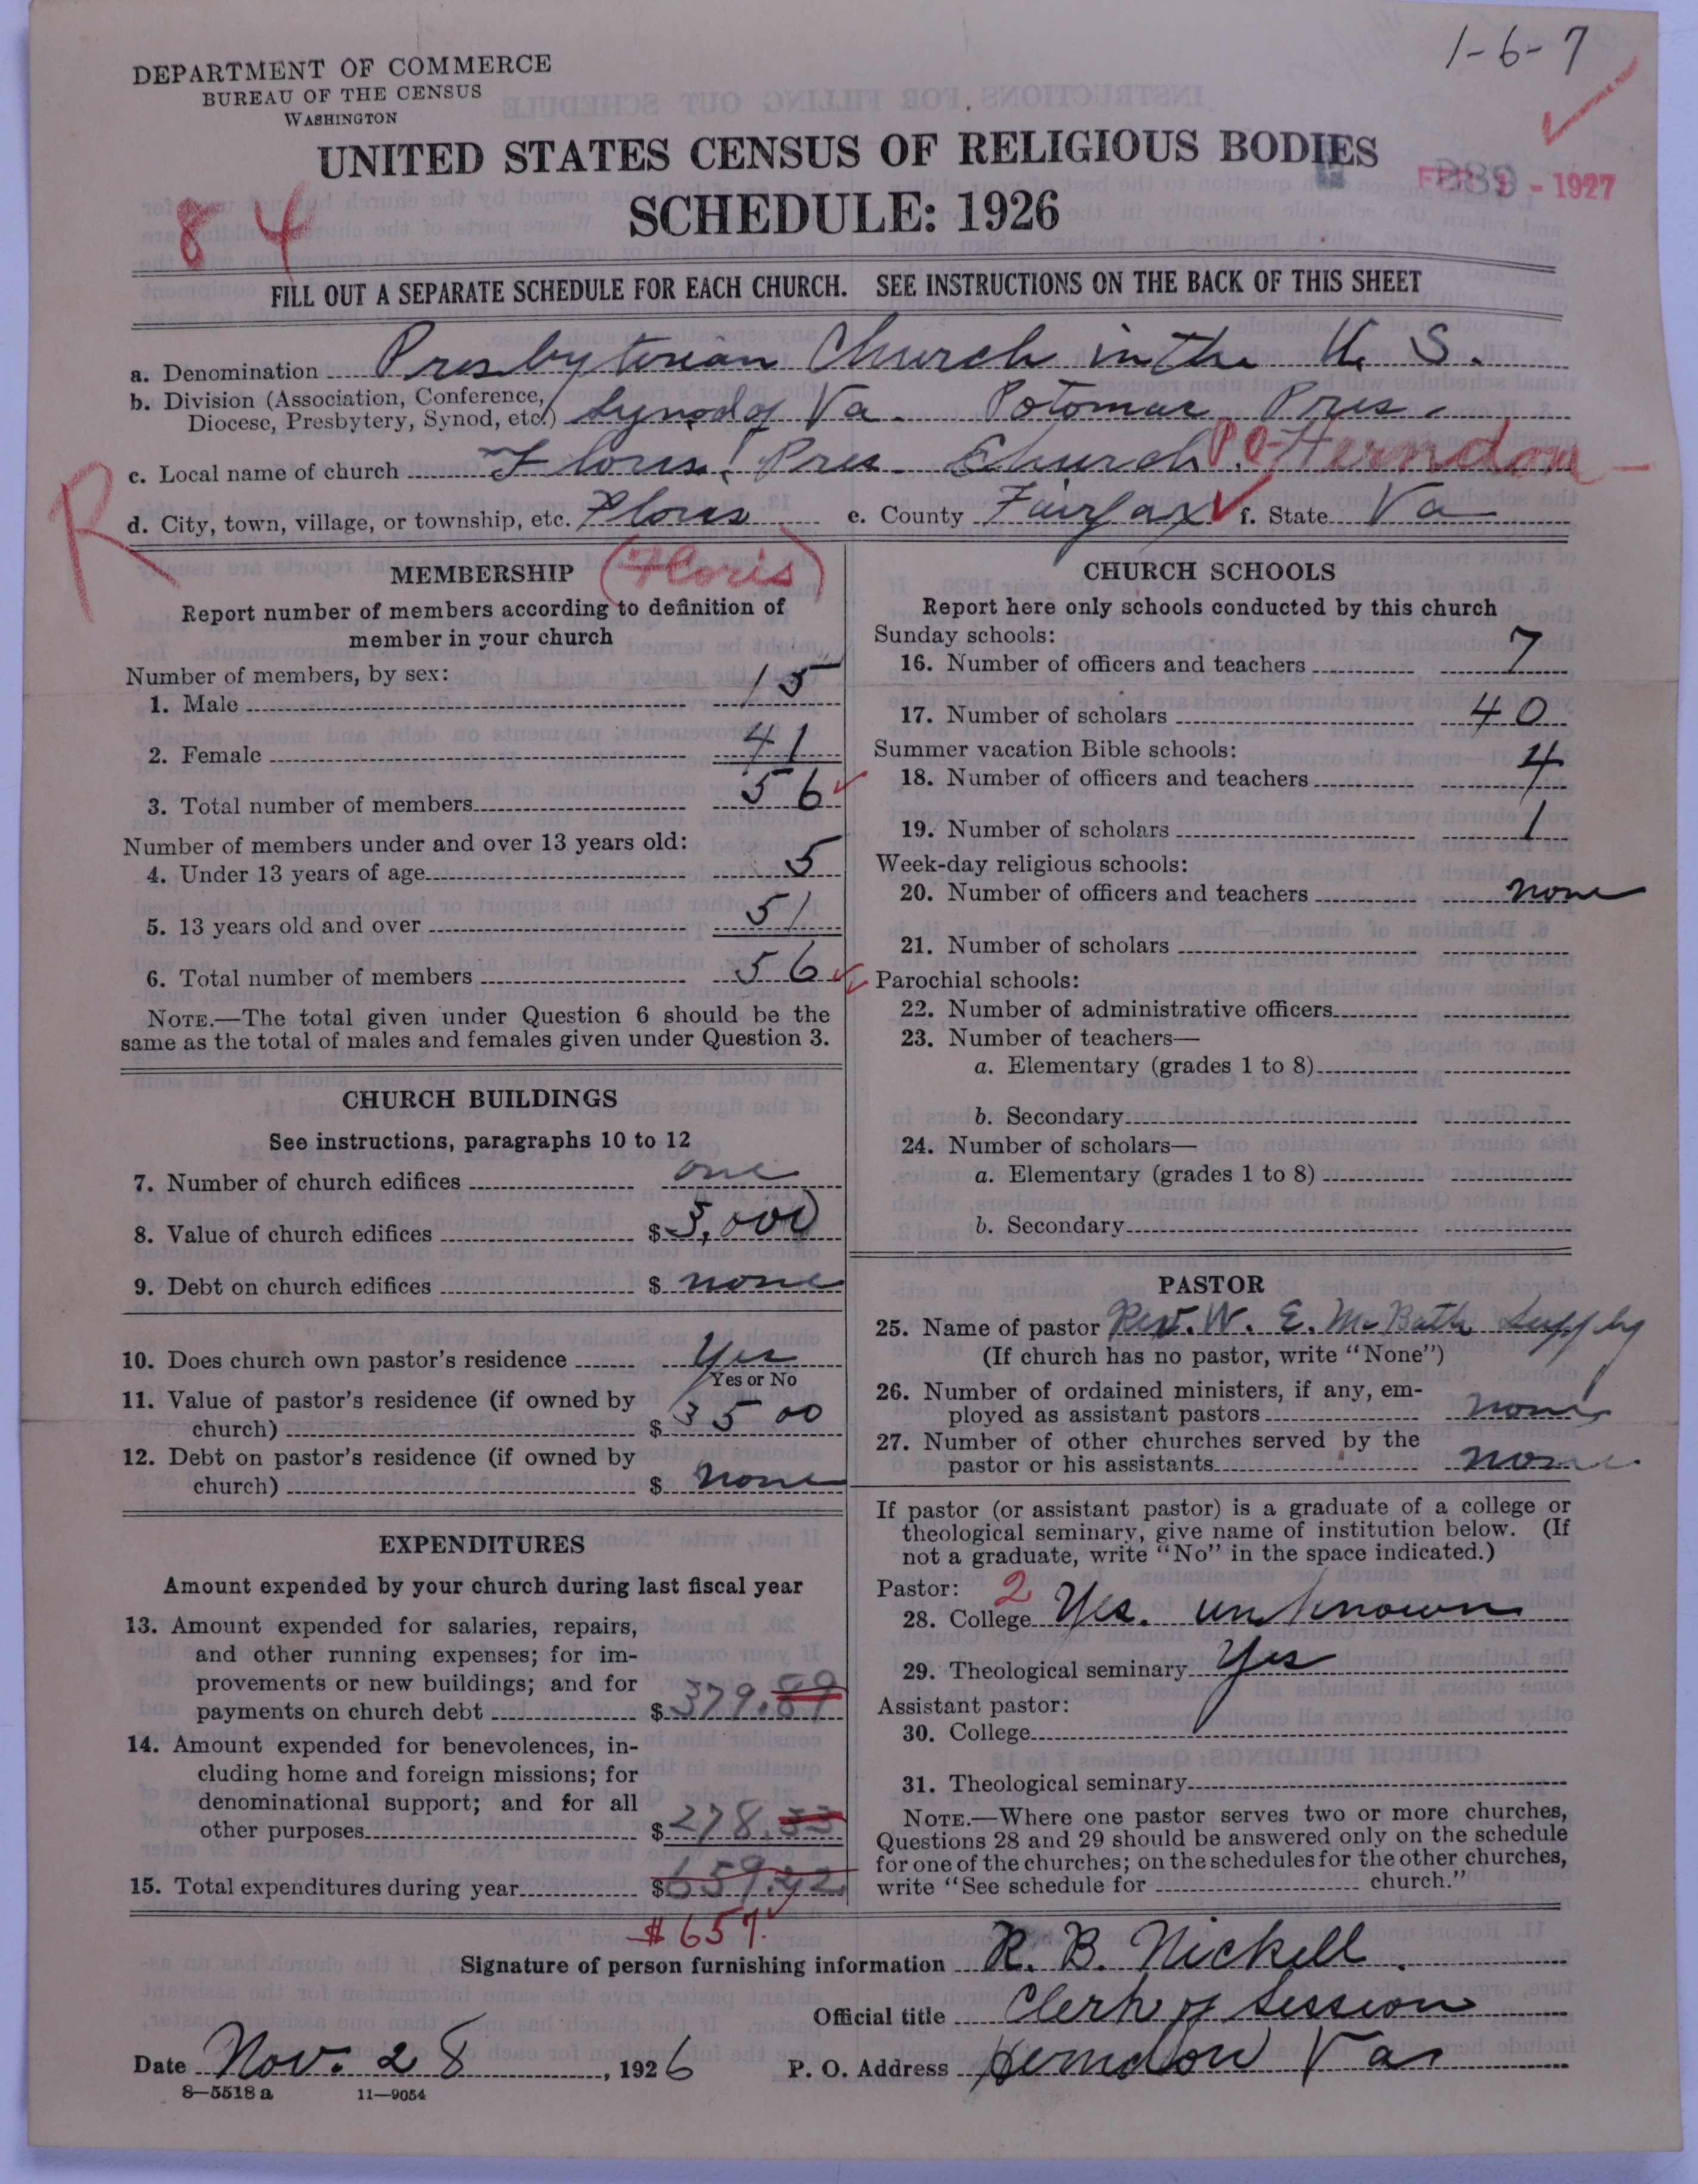 1-6-7
DEPARTMENT OF COMMERCE
BUREAU OF THE CENSUS
WASHINGTON
UNITED STATES CENSUS OF RELIGIOUS BODIES
FEB 1 - 1927
SCHEDULE: 1926
84
FILL OUT A SEPARATE SCHEDULE FOR EACH CHURCH. SEE INSTRUCTIONS ON THE BACK OF THIS SHEET
a. Denomination Presbyterian Church in the U. S.
b. Division (Association, Conference, Diocese, Presbytery, Synod, etc.) Synod of Va. Potomac Pres.
c. Local name of church Floris Pres. Church P O Herndon
R
d. City, town, village, or township, etc. Floris e. County Fairfax f. State Va
MEMBERSHIP (Floris)
Report number of members according to definition of
member in your church
Number of members, by sex:
1. Male 15
2. Female 41
3. Total number of members 56
Number of members under and over 13 years old:
4. Under 13 years of age 5
5. 13 years old and over 51
6. Total number of members 56
NOTE.—The total given under Question 6 should be the
same as the total of males and females given under Question 3.
CHURCH BUILDINGS
See instructions, paragraphs 10 to 12
7. Number of church edifices one
8. Value of church edifices $ 5,000
9. Debt on church edifices $ none
10. Does church own pastor's residence Yes
Yes or No
11. Value of pastor's residence (if owned by
church) $ 3500
12. Debt on pastor's residence (if owned by
church) $ none
EXPENDITURES
Amount expended by your church during last fiscal year
13. Amount expended for salaries, repairs,
and other running expenses; for im-
provements or new buildings; and for
payments on church debt $ 379.89
14. Amount expended for benevolences, in-
cluding home and foreign missions; for
denominational support; and for all
other purposes $ 278.33
15. Total expenditures during year $ 659.22
$ 657.
CHURCH SCHOOLS
Report here only schools conducted by this church
Sunday schools:
16. Number of officers and teachers 7
17. Number of scholars 40
Summer vacation Bible schools:
18. Number of officers and teachers 4
19. Number of scholars 1
Week-day religious schools:
20. Number of officers and teachers none
21. Number of scholars
Parochial schools:
22. Number of administrative officers
23. Number of teachers—
a. Elementary (grades 1 to 8)
b. Secondary
24. Number of scholars—
a. Elementary (grades 1 to 8)
b. Secondary
PASTOR
25. Name of pastor Rev. W. E. McBath Supply
(If church has no pastor, write "None")
26. Number of ordained ministers, if any, em-
ployed as assistant pastors none
27. Number of other churches served by the
pastor or his assistants none
If pastor (or assistant pastor) is a graduate of a college or
theological seminary, give name of institution below. (If
not a graduate, write "No" in the space indicated.)
Pastor: 2
28. College Yes. unknown
29. Theological seminary Yes
Assistant pastor:
30. College
31. Theological seminary
NOTE.—Where one pastor serves two or more churches,
Questions 28 and 29 should be answered only on the schedule
for one of the churches; on the schedules for the other churches,
write "See schedule for church."
Signature of person furnishing information R. B. Nickell.
Official title Clerk of Session
Date Nov. 28, 1926 P. O. Address Herndon Va
8—5518 a 11—9054